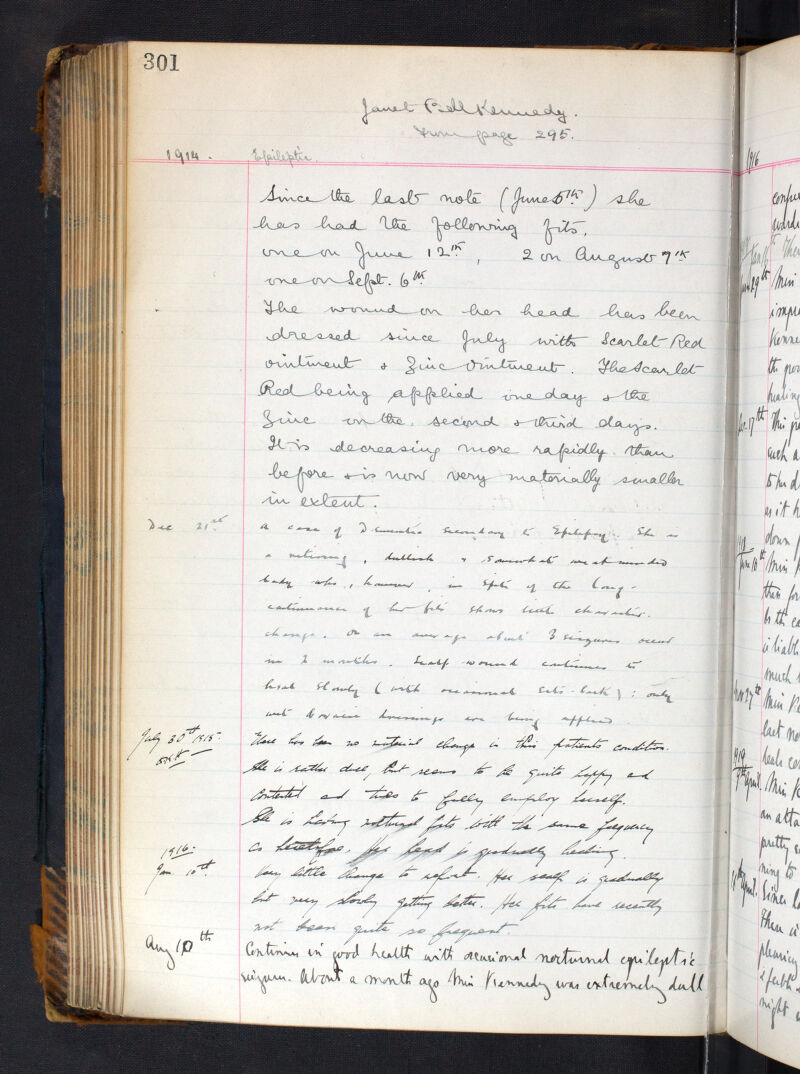 301
Janet Bell Kennedy.
From page 295.
1914. Epileptic
Since the last note (June 5th) she
has had the following fits.
one on June 12th, 2 on August 7th
one on Sept. 6th
The wound on her head has been
dressed since July with Scarlet Red
ointment & Zinc Ointment. The Scarlet
Red being applied one day & the
Zinc on the second & third days.
It is decreasing more rapidly than
before & is now very materially smaller
in extent.
Dec 21st A case of Dementia secondary to Epilepsy. She is
a retiring, dullish & somewhat weak minded
lady who, however, in spite of the long-
continuance of her fits shows little character
change. On an average about 3 seizures occur
in 2 months. Scalp wound continues to
heal slowly (with occasional set-backs): only
wet Boracic dressings are being applied.
July 30th 1915. There has been no material change in this patients condition.
She is rather dull, but seems to be quite happy and
contented and tries to fully employ herself.
She is having nocturnal fits with the same frequency
as heretofore. Her head is gradually healing.
1916.
Jan 10th. Very little change to report. Her scalp is gradually
but very slowly getting better. Her fits have recently
not been quite so frequent.
Aug 10th Continues in good health with occasional nocturnal epileptic
seizures. About a month ago Miss Kennedy was extremely dull
1916
29th Miss
17th This
such a
as it h
down
1918
June 10th Miss
than for
is liable
much
27th Miss
last no
1919
9th April. Miss K
an atta
pretty
ning to
April. Since
night